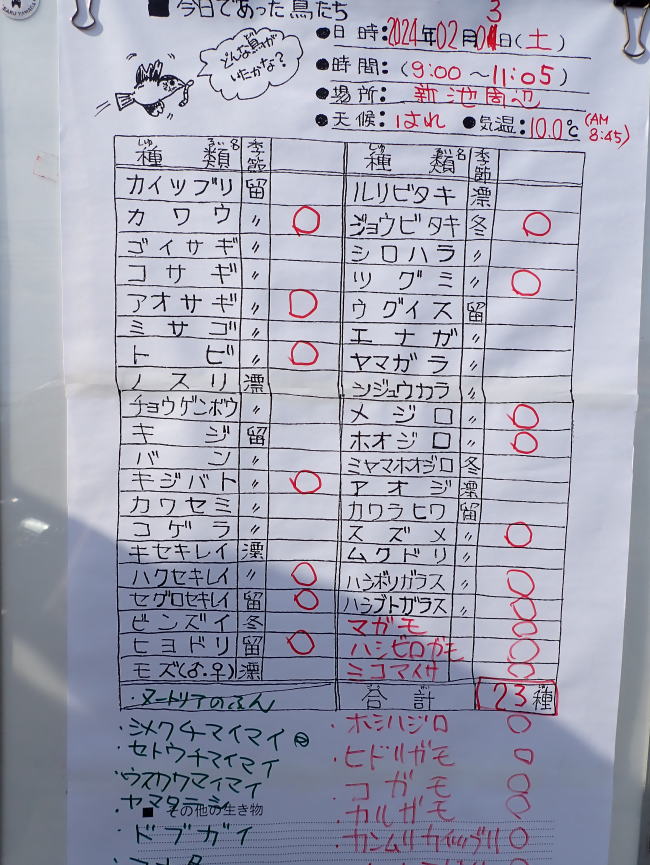 ■今日であった鳥たち
どんな鳥が
いたかな?
●日時:2024年02月03日(土)
●時間:(9:00〜11:05)
●場所: 新池周辺
●天候:はれ ●気温:10.0℃(AM 8:45)
種類名 季節 種類名 季節
カイツブリ 留 ルリビタキ 漂
カワウ 〃 ○ ジョウビタキ 冬 ○
ゴイサギ 〃 シロハラ 〃
コサギ 〃 ツグミ 〃 ○
アオサギ 〃 ○ ウグイス 留
ミサゴ 〃 エナガ 〃
トビ 〃 ○ ヤマガラ 〃
ノスリ 漂 シジュウカラ 〃
チョウゲンボウ 〃 メジロ 〃 ○
キジ 留 ホオジロ 〃 ○
バン 〃 ミヤマホオジロ 冬
キジバト 〃 ○ アオジ 漂
カワセミ 〃 カワラヒワ 留
コゲラ 〃 スズメ 〃 ○
キセキレイ 漂 ムクドリ 〃
ハクセキレイ 〃 ○ ハシボソガラス 〃 ○
セグロセキレイ 留 ○ ハシブトガラス 〃 ○
ビンズイ 冬 マガモ ○
ヒヨドリ 留 ○ ハシビロガモ ○
モズ(♂.♀) 漂 ミコアイサ ○
・ヌートリアのふん 合計 23種
・シメクチマイマイ ・ホシハジロ ○
・セトウチマイマイ ・ヒドリガモ ○
・ウスカワマイマイ ・コガモ ○
・ヤマタニシ ・カルガモ ○
■ その他の生き物
・ドブガイ ・カンムリカイツブリ ○